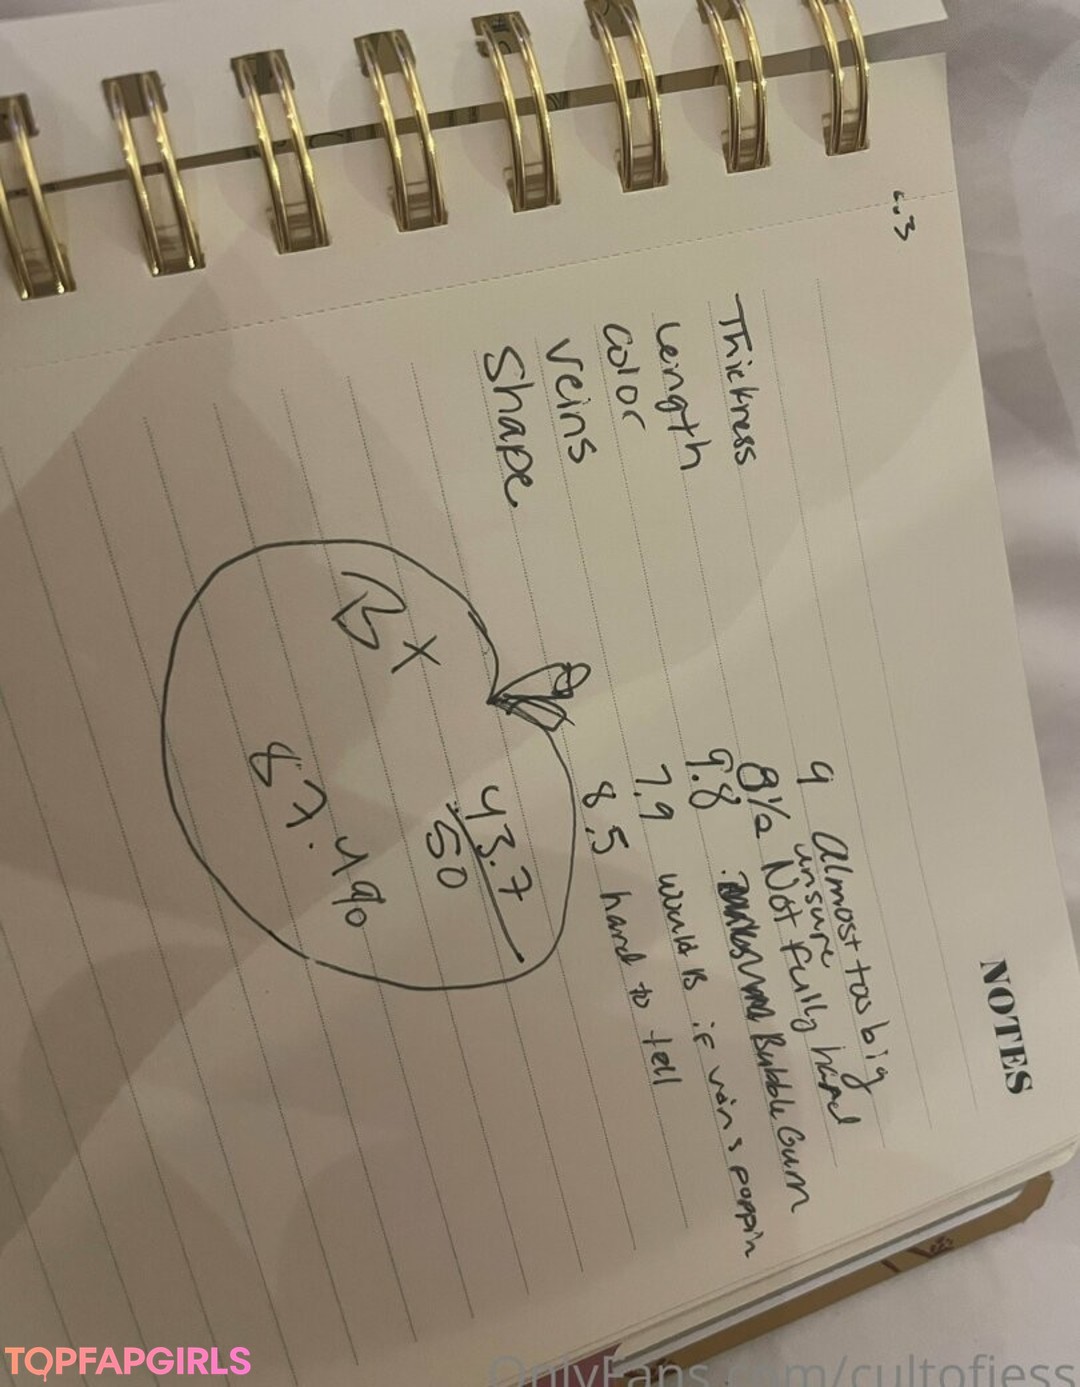 NOTES
6.3
Thickness 9 almost too big
unsure
Length 8 1/2 Not fully hard
Color 9.8 Bubble Gum
Veins 7.9 would B if veins poppin
Shape 8.5 hard to tell
43.7
50
B+
87.4%
TOPFAPGIRLS
OnlyFans.com/cultofjess